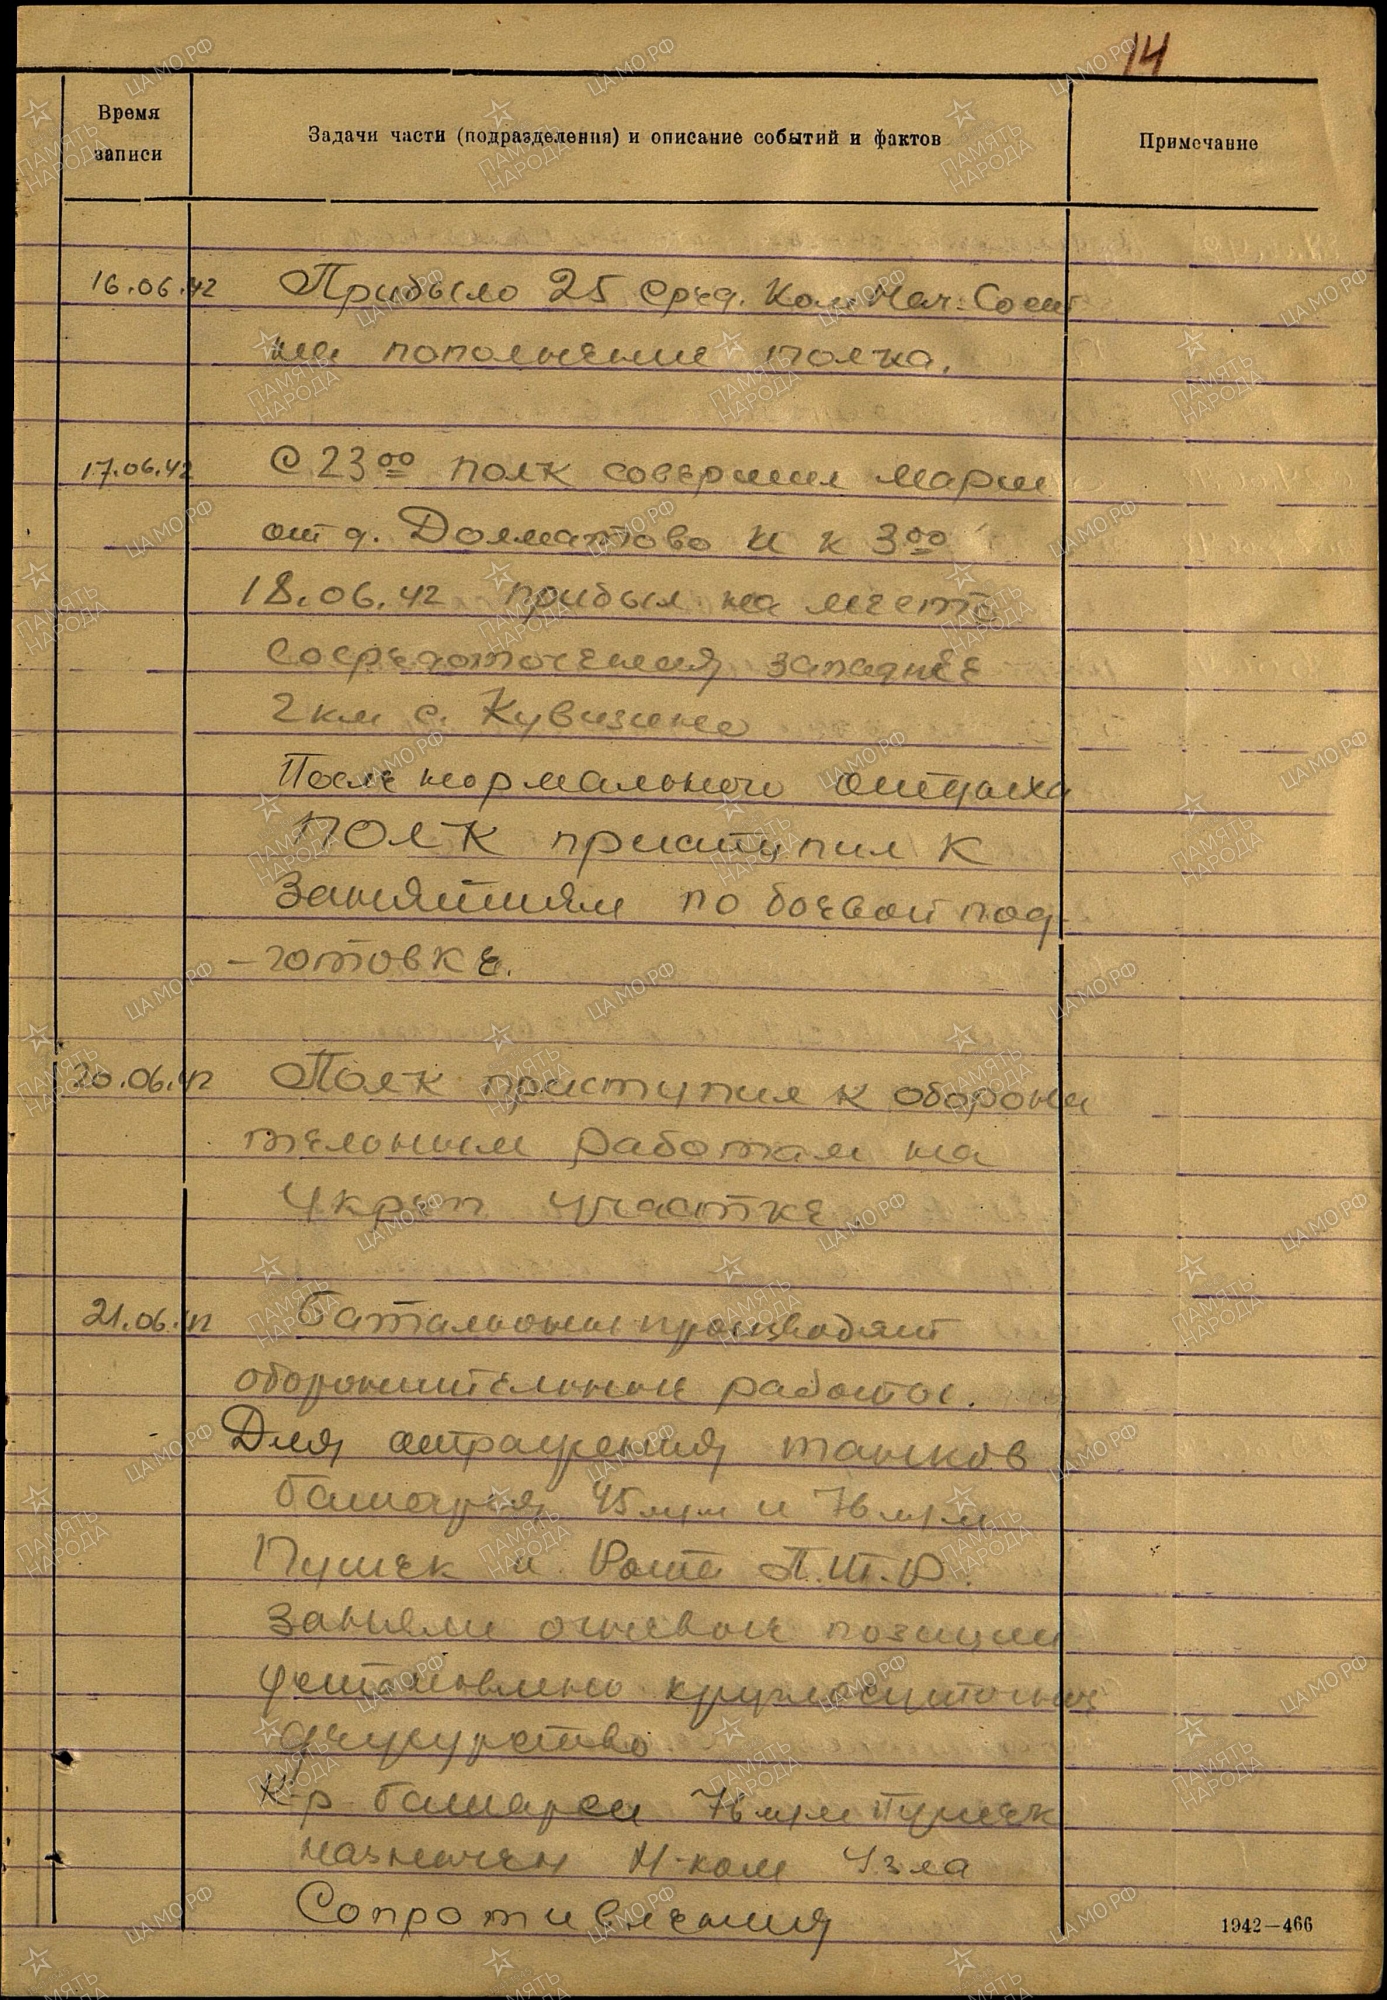 14
Время
записи
Задачи части (подразделения) и описание событий и фактов
Примечание
16.06.42 Прибыло 25 сред. Ком. Нач. Сост
на пополнение полка.
17.06.42 С 23 00 полк совершил марш
от д. Долматово и к 3 00
18.06.42 прибыл на место
сосредоточения западнее
2 км с. Кувизино
После нормального отдыха
полк приступил к
занятиям по боевой под-
-готовке.
20.06.42 Полк приступил к оборони
тельным работам на
укреп участке.
21.06.42 Батальоны производят
оборонительные работы.
Для отражения танков
батарея 45 мм и 76 мм
Пушек и Рота П.Т.Р.
заняли огневые позиции
установлено круглосуточное
дежурство
К-р батареи 76 мм пушек
назначен Н-ком узла
Сопротивления
1942—466